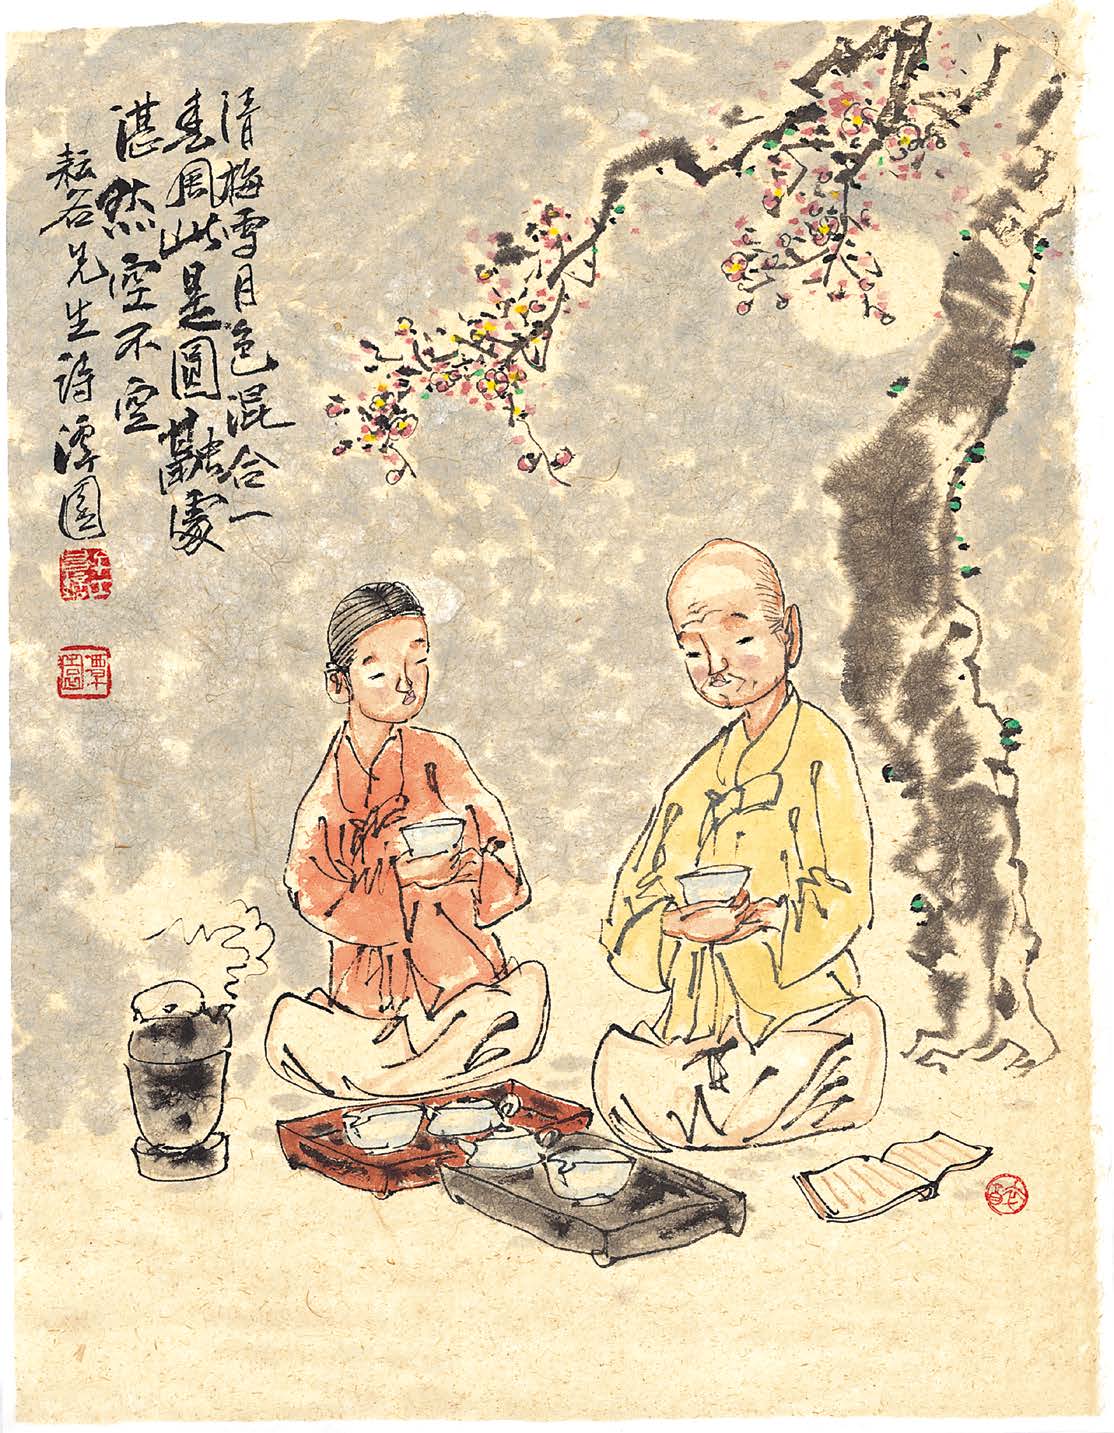 清梅雪月色混合一
春風此是圓融處
湛然空不空
耘谷先生詩 潭園